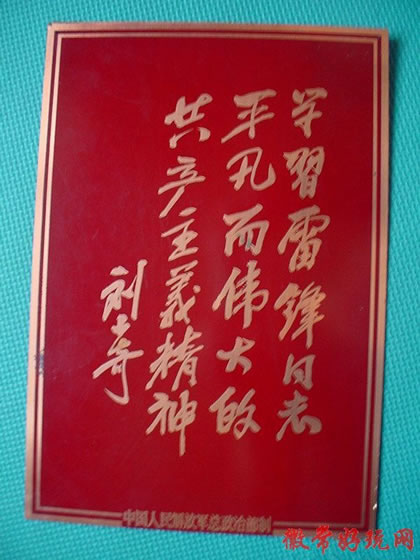 学習雷锋同志
平凡而伟大的
共产主義精神
刘少奇
中国人民解放军总政治部制
徽常好玩网